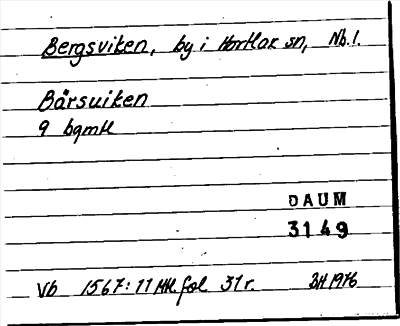 Bergsviken, by i Hortlax sn, Nb.l.
Bärsuiken
9 bgmtl
DAUM
3149
Vb 1567:11 Mtl fol 31 r. BH 1976